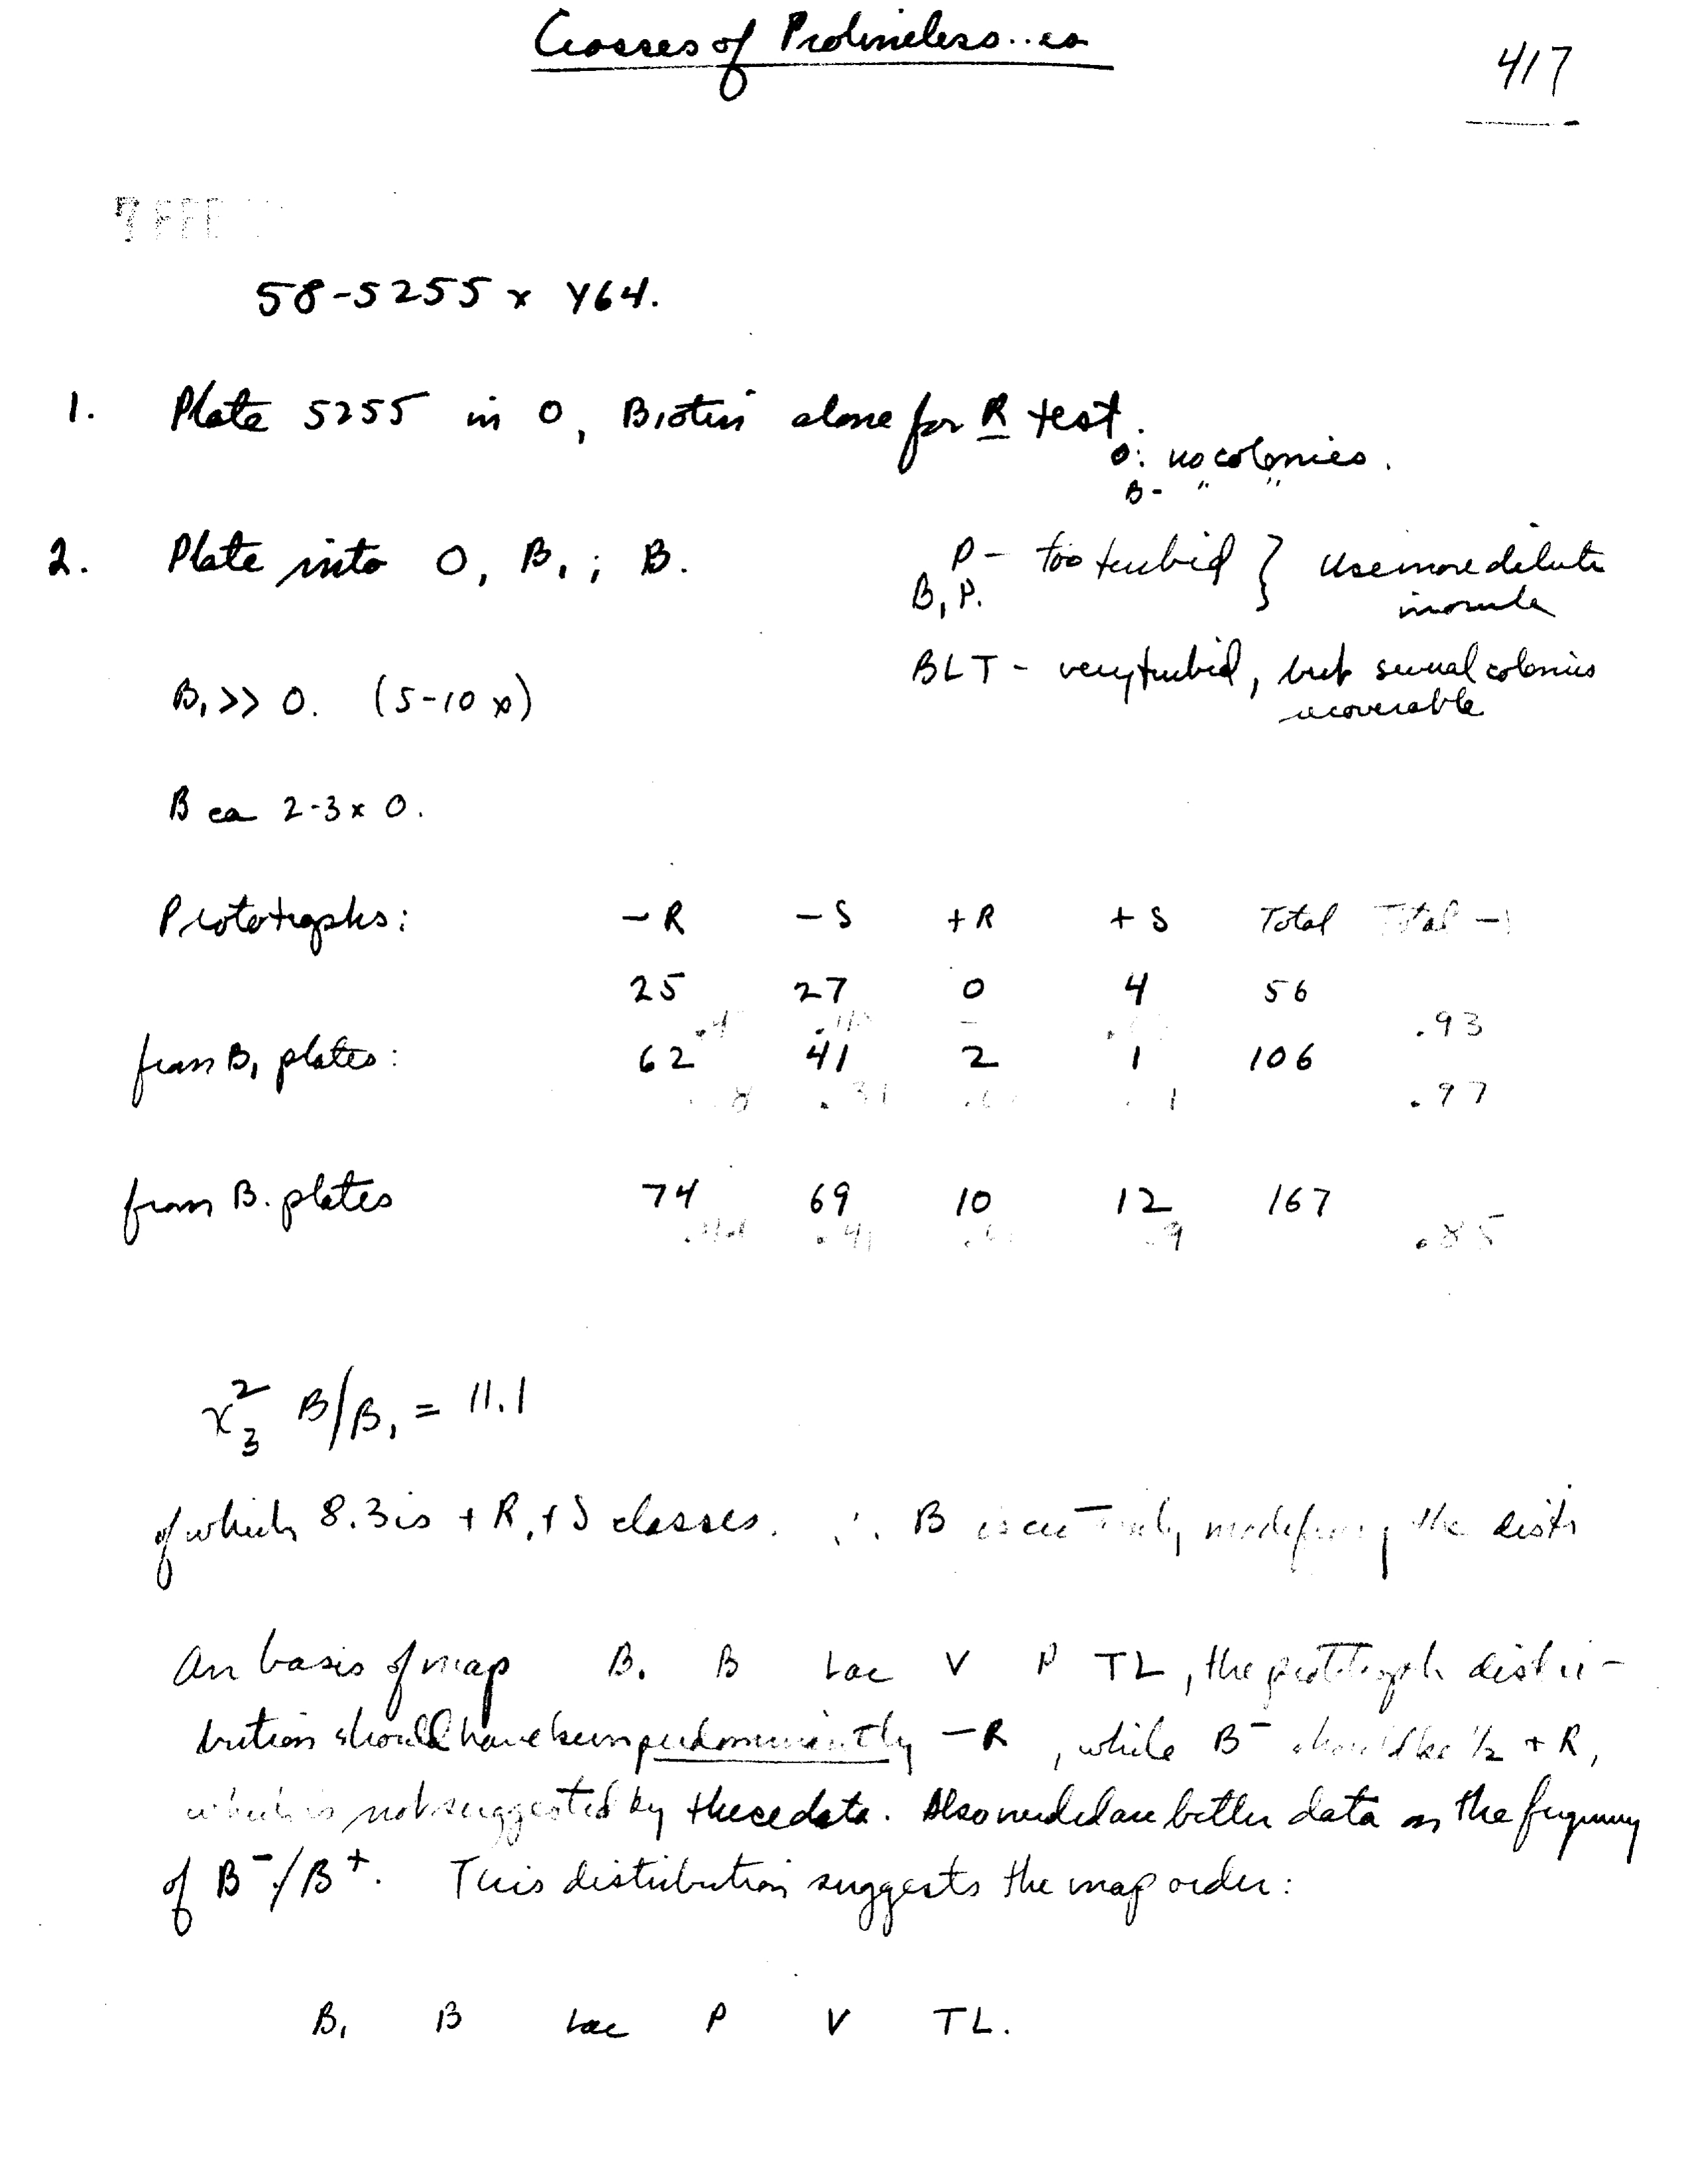 Crosses of Prolineless..es
417
7 FEB
58-5255 x Y64.
1. Plate 5255 in O, Biotin alone for R test.
O: no colonies.
B- " "
2. Plate into O, B₁; B.
P - too turbid } Use more dilute
B₁P. inocula
BLT - very turbid, but several colonies
recoverable
B₁ >> O. (5-10 x)
B ca 2-3 x O.
Prototrophs: -R -S +R +S Total Total -
25 27 0 4 56
.93
from B₁ plates: 62 41 2 1 106
.97
from B. plates 74 69 10 12 167
.44 .41 .85
χ²₃ B/B₁ = 11.1
of which 8.3 is +R, +S classes. ∴ B is modifying the distr
On basis of map B₁ B Lac V P TL, the prototroph distri-
bution should have been predominantly -R, while B⁻ should be ½ +R,
which is not suggested by these data. Also needed are better data on the frequency
of B⁻/B⁺. This distribution suggests the map order:
B₁ B Lac P V TL.